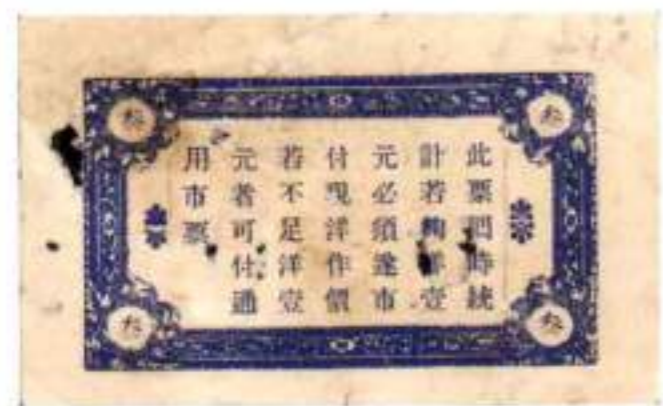 叁
叁
此票巴時統
計若夠洋壹
元必須遂市
付现洋作價
若不足洋壹
元者可付通
用市票
叁
叁